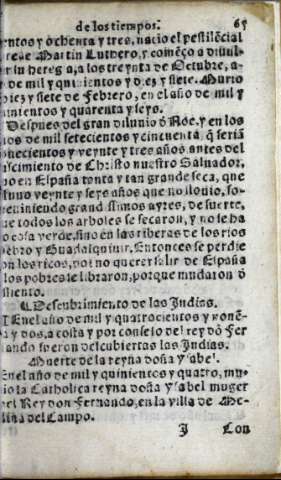 de los tiempos. 65
entos y ochenta y tres, nacio el pestilẽcial
Martin Luthero, y comẽço a divul-
su heregia, a los treynta de Octubre, a-
de mil y quinientos y diez y siete. Murio
diez y siete de Febrero, en el año de mil y
uinientos y quarenta y seys.
Despues del gran diluuio ð Noe, y en los
ños de mil setecientos y cincuenta, q̃ seriã
nouecientos y veynte y tres años antes del
ascimiento de Christo nuestro Saluador,
uo en España tanta y tan grande seca, que
stuuo veynte y seys años que no llouio, so-
reuiniendo grandissimos ayres, de suerte,
ue todos los arboles se secaron, y no se ha
o cosa verde, sino en las riberas de los rios
Hebro y Guadalquiuir. Entonces se perdie
on los ricos, por no querer salir de España
los pobres se libraron, porque mudaron ð
ssiento.
¶ Descubrimiento de las Indias.
En el año de mil y quatrocientos y nouẽ-
a y dos, a costa y por consejo del rey dõ Fer
ando fueron descubiertas las Indias.
Muerte de la reyna doña Ysabel.
En el año de mil y quinientos y quatro, mu-
io la Catholica reyna doña Ysabel muger
el Rey don Fernando, en la villa de Me-
ina del Campo.
I Con